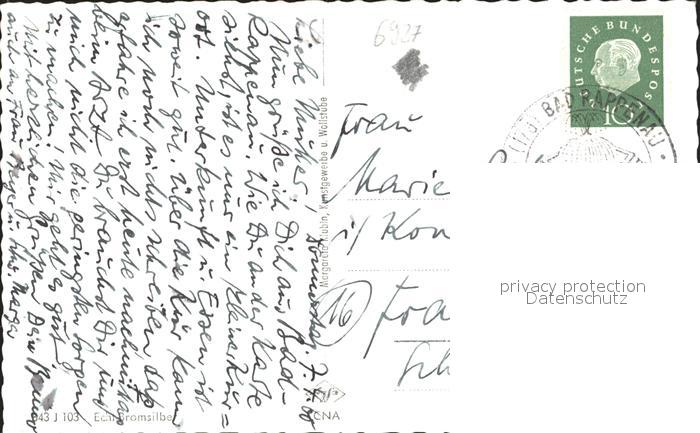 Donnerstag, 7.4.60
Liebe Mutter,
Nun grüße ich Dich aus Bad-
Rappenau. Wie Du an der Karte
siehst, ist es nur ein kleiner Kur=
ort. Unterkunft u. Essen ist
soweit gut. Über die Kur kann
ich noch nichts schreiben, das
erfahre ich erst heute nachmittag
beim Arzt. Du brauchst Dir um
mich nicht die geringsten Sorgen
zu machen! Mir geht es gut.
Mit herzlichen Grüßen Dein
auch an Frau
6927
Frau
Marie
b/ Kon
(16) Fra
Sch
DEUTSCHE BUNDESPOST
10
BAD RAPPENAU
privacy protection
Datenschutz
Margarete Kubin, Kunstgewerbe u. Wollstube
43 J 103 Echt Bromsilber
CNA